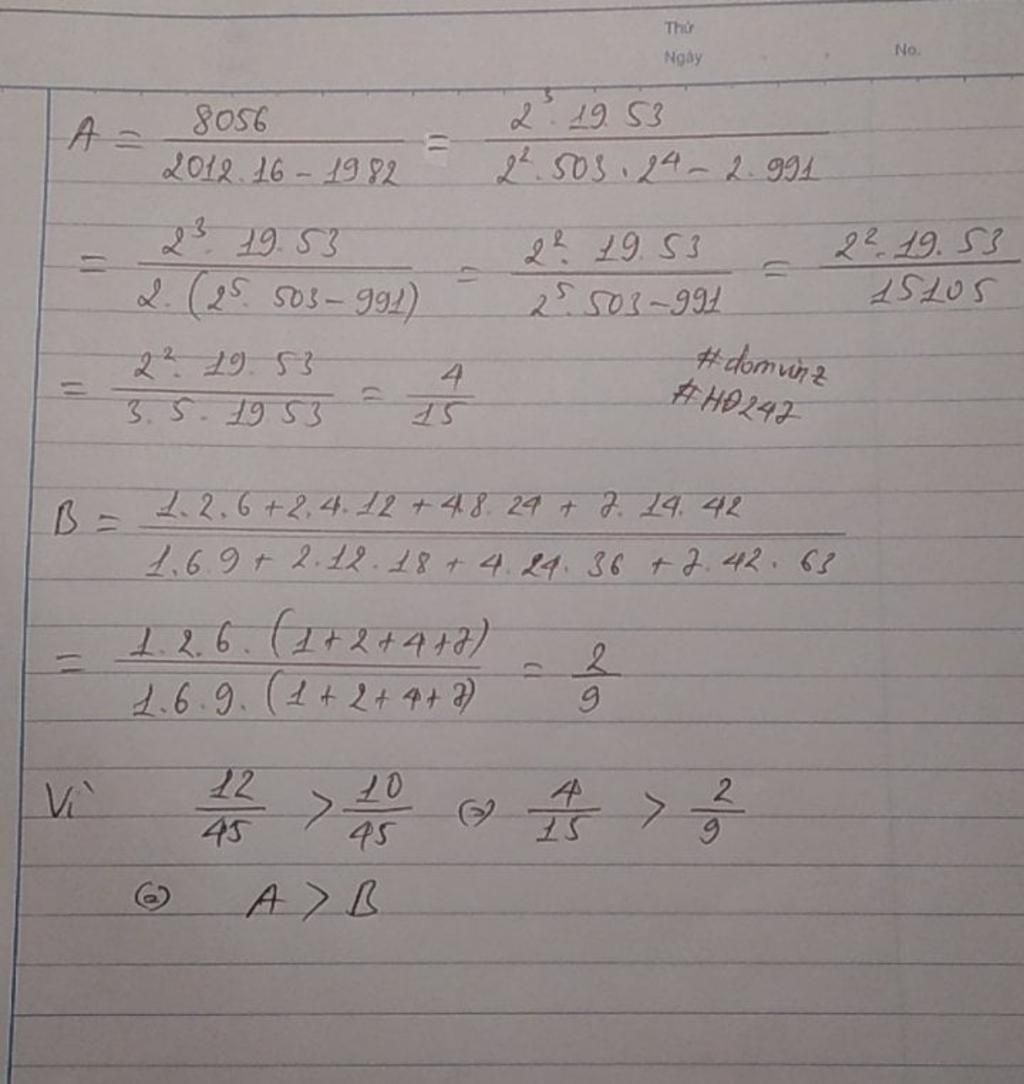 Thứ
Ngày No.
A = 8056 / 2012.16 - 1982 = 2³. 19. 53 / 2². 503 . 2⁴ - 2. 991
= 2³. 19. 53 / 2. (2⁵. 503 - 991) = 2². 19. 53 / 2⁵. 503 - 991 = 2². 19. 53 / 15105
= 2². 19. 53 / 3. 5. 19 53 = 4 / 15
#dominz
#HĐ247
B = 1.2.6 + 2.4.12 + 4.8.24 + 7.14.42 / 1.6.9 + 2.12.18 + 4.24.36 + 7.42.63
= 1.2.6.(1+2+4+7) / 1.6.9.(1+2+4+7) = 2 / 9
Vì 12 / 45 > 10 / 45 (=) 4 / 15 > 2 / 9
(=) A > B